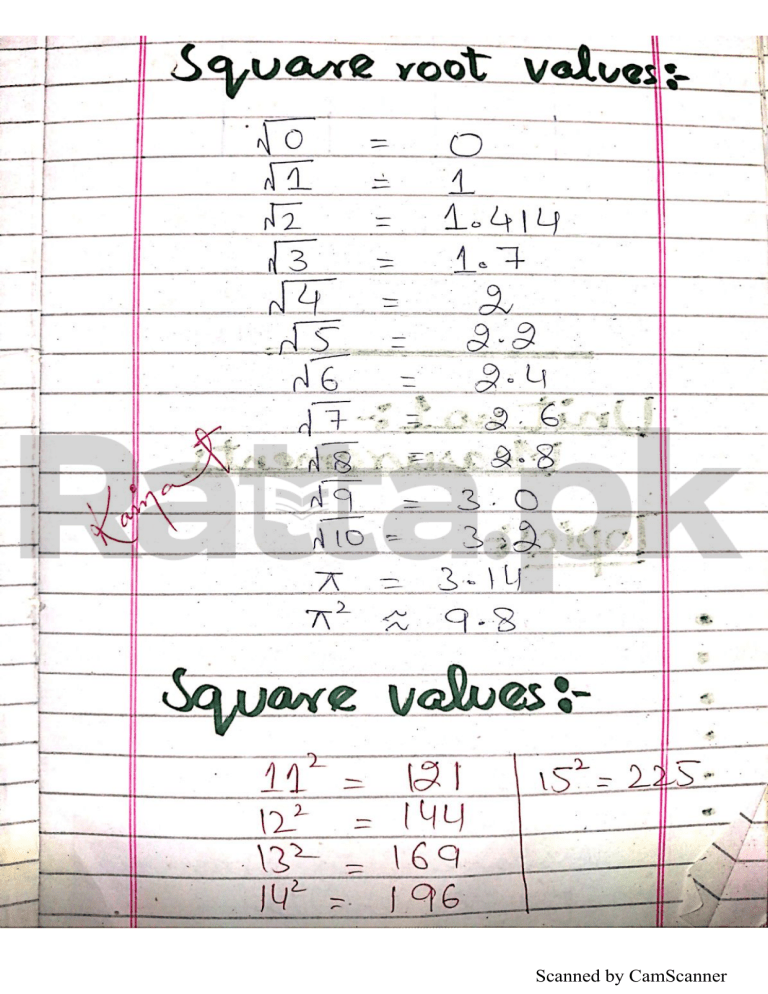 Square root values:-
√0 = 0
√1 = 1
√2 = 1.414
√3 = 1.7
√4 = 2
√5 = 2.2
√6 = 2.4
√7 = 2.6
√8 = 2.8
√9 = 3.0
√10 = 3.2
π = 3.14
π² ≈ 9.8
Kainat
Ratta.pk
Square values:-
11² = 121 | 15² = 225
12² = 144
13² = 169
14² = 196
Scanned by CamScanner